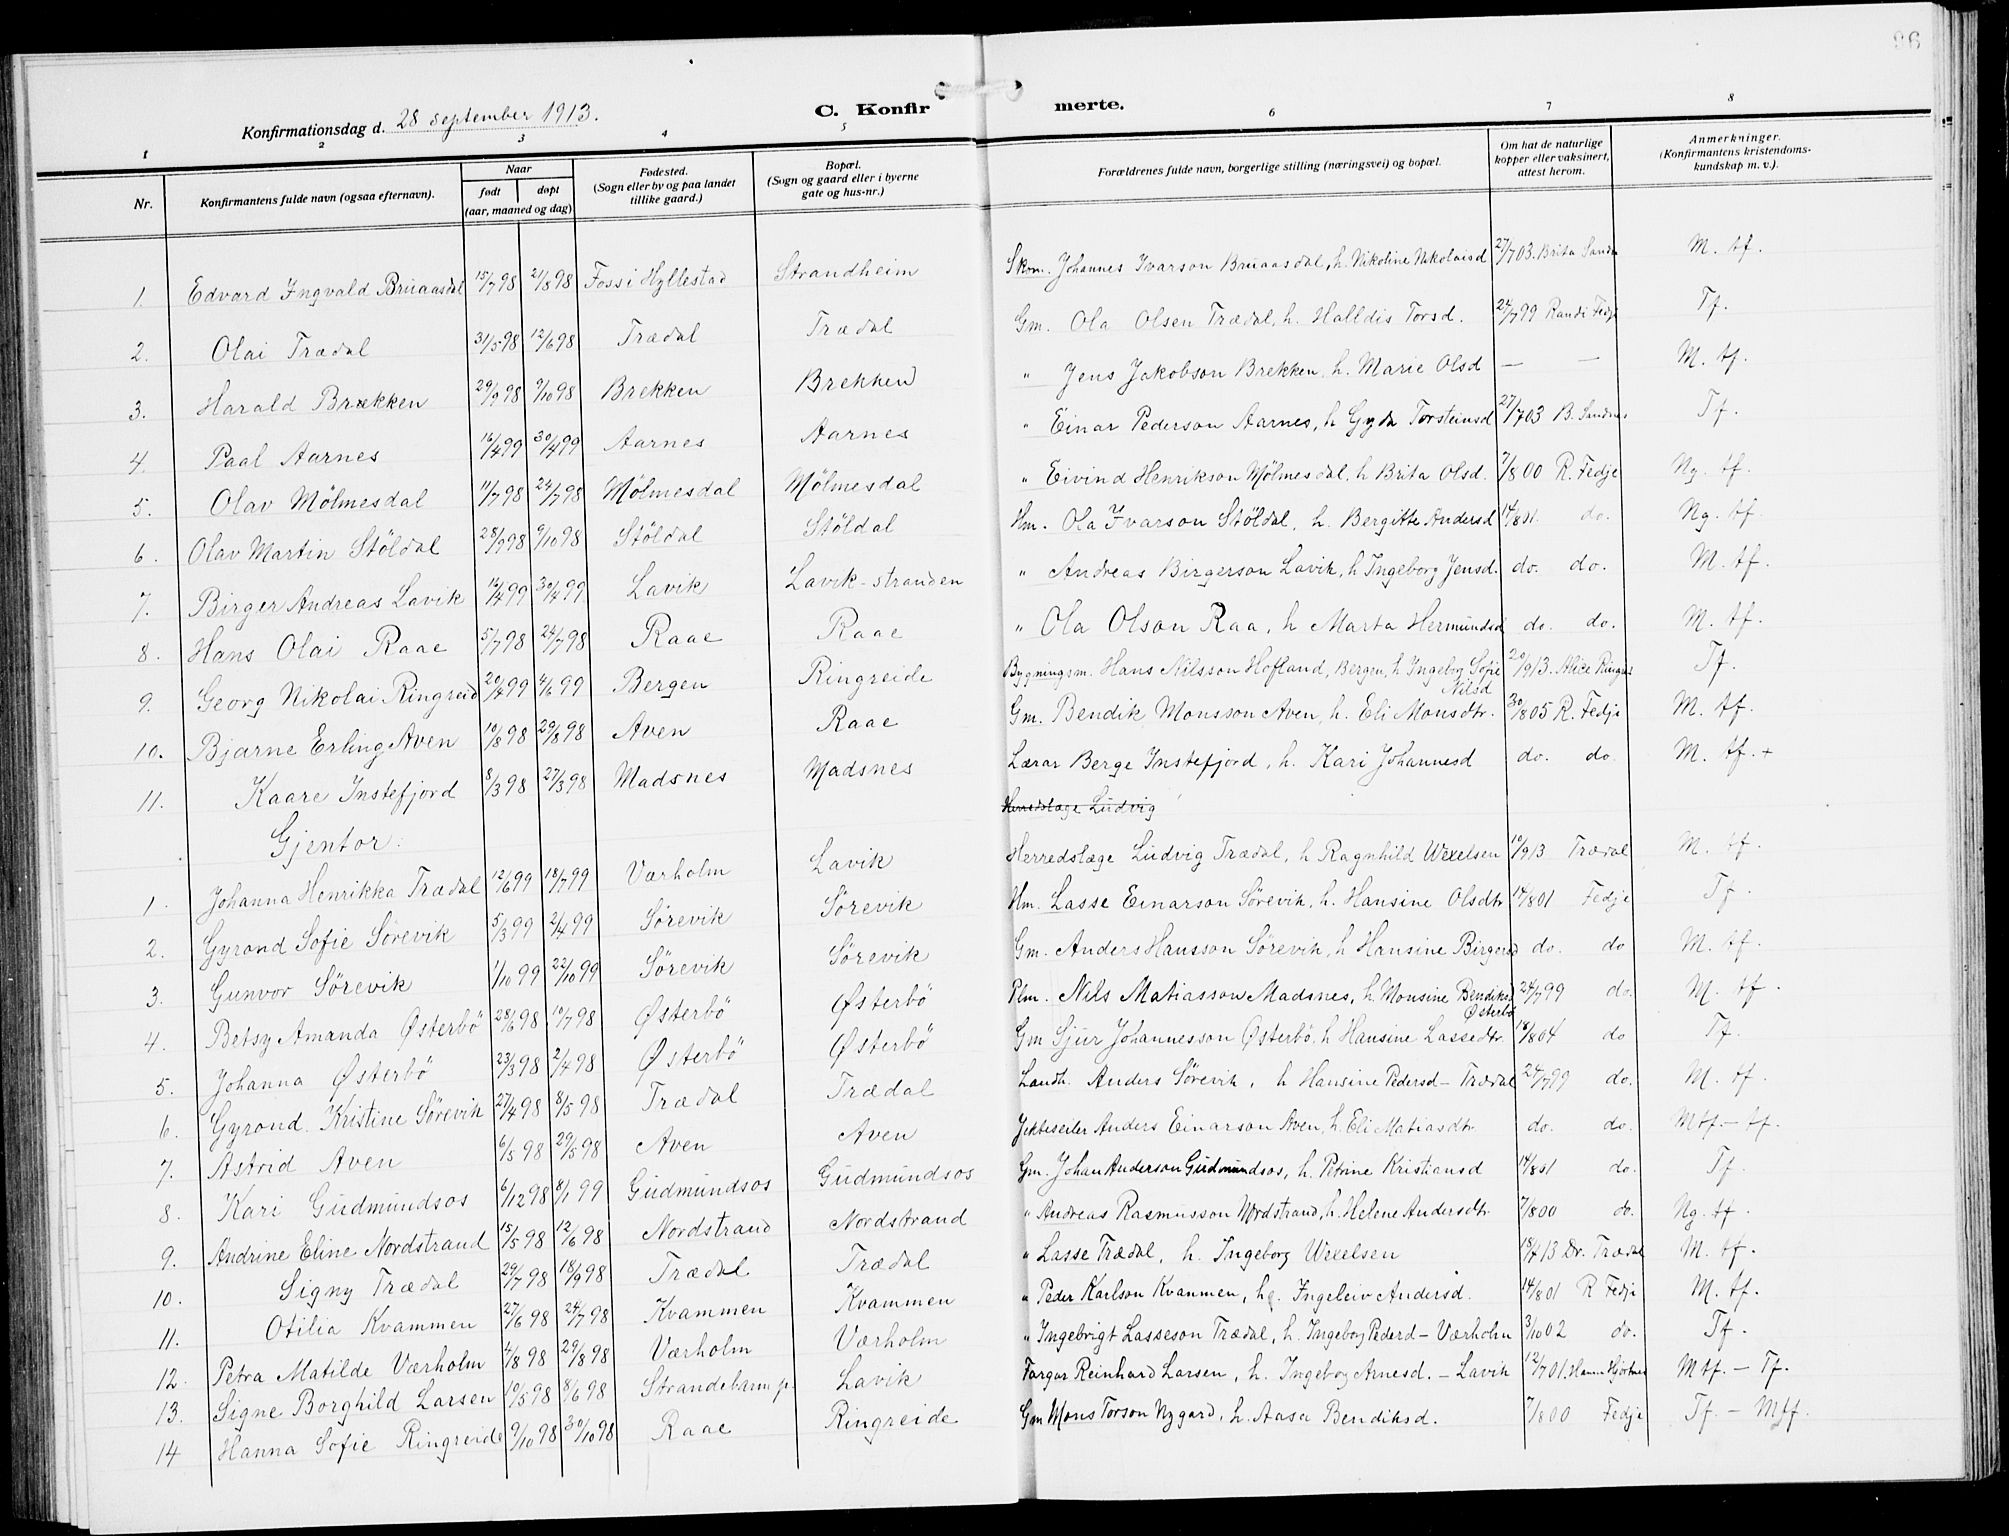 96
Konfirmationsdag d. 28 september 1913.
C. Konfirmerte.
1 2 3 4 5 6 7 8
Nr. Konfirmantens fulde navn (ogsaa efternavn). Naar født døpt (aar, maaned og dag) Fødested. (Sogn eller by og paa landet tillike gaard.) Bopæl. (Sogn og gaard eller i byerne gate og hus-nr.) Forældrenes fulde navn, borgerlige stilling (næringsvei) og bopæl. Om hat de naturlige kopper eller vaksinert, attest herom. Anmerkninger. (Konfirmantens kristendoms-kundskap m. v.).
1. Edvard Ingvald Bruaasdal 15/7 98 21/8 98 Foss i Hyllestad Strandheim Skom. Johannes Ivarson Bruaasdal, h. Nikoline Nikolaisd 27/7 03. Brita Sandn M. tf.
2. Olai Trædal 31/5 98 12/6 98 Trædal Trædal Gm. Ola Olsen Trædal, h. Halldis Torsd. 24/7 99 Randi Fedje Tf.
3. Harald Brækken 29/9 98 9/10 98 Brekken Brekken " Jens Jakobson Brekken, h. Marie Olsd — — M. tf.
4. Paal Aarnes 16/4 99 30/4 99 Aarnes Aarnes " Einar Pederson Aarnes, h Gyda Torsteinsd 27/7 03 B. Sandnes Tf.
5. Olav Mölmesdal 11/7 98 24/7 98 Mölmesdal Mölmesdal " Eivind Henrikson Mölmesdal, h Brita Olsd. 7/8 00 R. Fedje Ng. tf.
6. Olav Martin Stöldal 28/9 98 9/10 98 Stöldal Stöldal Hm. Ola Ivarson Stöldal, h. Bergitte Andersd 14/8 01. do. Ng. tf.
7. Birger Andreas Lavik 16/4 99 30/4 99 Lavik Lavik-stranden " Andreas Birgerson Lavik, h Ingeborg Jensd. do. do. M. tf.
8. Hans Olai Raae 5/7 98 24/7 98 Raae Raae " Ola Olson Raa, h Marta Hermundsd do. do. M. tf.
9. Georg Nikolai Ringreid 20/4 99 4/6 99 Bergen Ringreide Bygningsm. Hans Nilsson Hofland, Bergen, h Ingeborg Sofie Nilsd 20/9 13. Tf.
10. Bjarne Erling Aven 10/8 98 29/8 98 Aven Raae Gm. Bendik Monsson Aven, h. Eli Monsdtr. 30/8 05 R. Fedje M. tf.
11. Kaare Instefjord 8/3 98 27/3 98 Madsnes Madsnes Lærar Berge Instefjord, h. Kari Johannesd do. do. M. tf. +
Herredslæge Ludvig
Gjentor:
1. Johanna Henrikka Trædal 12/6 99 18/7 99 Værholm Lavik Herredslæge Ludvig Trædal, h Ragnhild Wexelsen 10/9 13 Trædal M. tf.
2. Gyrond Sofie Sörevik 5/3 99 2/4 99 Sörevik Sörevik Hm. Lasse Einarson Sörevik, h. Hansine Olsdtr 14/8 01 Fedje Tf.
3. Gunvor Sörevik 1/10 99 22/10 99 Sörevik Sörevik Gm. Anders Hansson Sörevik, h Hansine Birgersd do. do M. tf.
4. Betsy Amanda Østerbö 28/6 98. 10/7 98 Østerbö Østerbö Plm. Nils Matiasson Madsnes, h Monsine Bendiksd Østerbö 24/7 99 do. M. tf.
5. Johanna Østerbö 23/3 98 2/4 98 Østerbö Østerbö Gm Sjur Johannesson Østerbö, h Hansine Lassedtr. 18/8 04 do Tf.
6. Gyrond Kristine Sörevik 27/4 98 8/5 98 Trædal Trædal Landh. Anders Sörevik, h Hansine Pedersd - Trædal 24/7 99 do. M. tf.
7. Astrid Aven 6/5 98 29/5 98 Aven Aven Jekteseiler Anders Einarson Aven, h. Eli Matiasdtr do. do. Mtf. - tf.
8. Kari Gudmundsos 6/12 98 8/1 99 Gudmundsos Gudmundsos Gm. Johan Anderson Gudmundsos, h. Petrine Kristiansd 14/8 01 do. Tf
9. Andrine Eline Nordstrand 15/5 98 12/6 98 Nordstrand Nordstrand " Andreas Rasmusson Nordstrand, h. Helene Andersdtr. 7/8 00 do. Ng. tf.
10. Signy Trædal 29/7 98 18/9 98 Trædal Trædal " Lasse Trædal, h. Ingeborg Wexelsen 18/7 13 Dr. Trædal M. tf.
11. Otilia Kvammen 27/6 98 24/7 98 Kvammen Kvammen " Peder Karlson Kvammen, hg. Ingeleiv Andersd. 14/8 01 R Fedje M. tf.
12. Petra Matilde Værholm 4/8 98 29/8 98 Værholm Værholm " Ingebrigt Lasseson Trædal, h. Ingeborg Pederd - Værholm 3/10 02 do. Tf.
13. Signe Borghild Larsen 19/5 98 8/6 98 Strandebarm p. Lavik Fargar Reinhard Larsen, h. Ingeborg Arnesd. - Lavik 12/7 01. M tf. - Tf.
14 Hanna Sofie Ringreide 9/10 98 30/10 98 Raae Ringreide Gm Mons Torson Nygard, h. Aasa Bendiksd. 7/8 00 Fedje Tf. - Mtf.